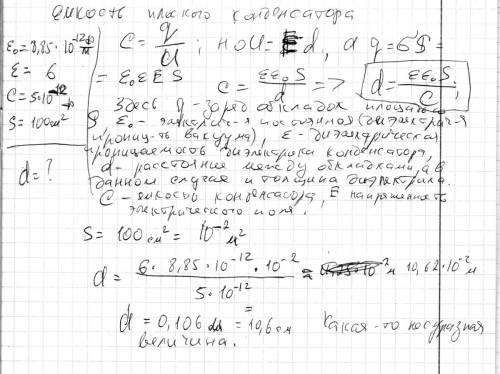 Емкость плоского конденсатора
ε₀=8,85·10⁻¹² ф/м
ε = 6
C=5·10⁻¹² ф
S=100см²
d=?
C = q/U ; но U=Ed, а q=σS=
= ε₀εES C = εε₀S/d => d = εε₀S/C ;
Здесь q-заряд обкладок площадью
S, ε₀- электрич-я постоянная (диэлектрич-я
прониц-ть вакуума), ε-диэлектрическая
проницаемость диэлектрика конденсатора,
d- расстояние между обкладками, а в
данном случае и толщина диэлектрика.
C - емкость конденсатора, E напряженность
электрического поля.
S = 100 см² = 10⁻² м²
d = 6·8,85·10⁻¹²·10⁻² / 5·10⁻¹² = 10,62·10⁻² м
d = 0,106 м = 10,6 см Какая-то несуразная
величина.